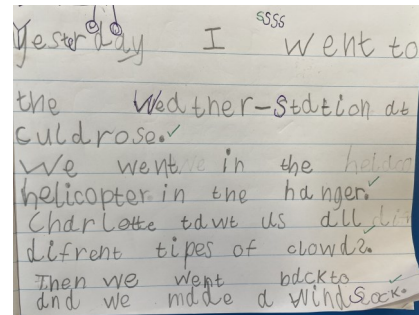 ssss
Yesterday I went to
the Weather-Station at
culdrose.
We went in the
helicopter in the hanger.
Charlotte tawt us all
difrent tipes of clowds.
Then we went backto
and we made a windSock.